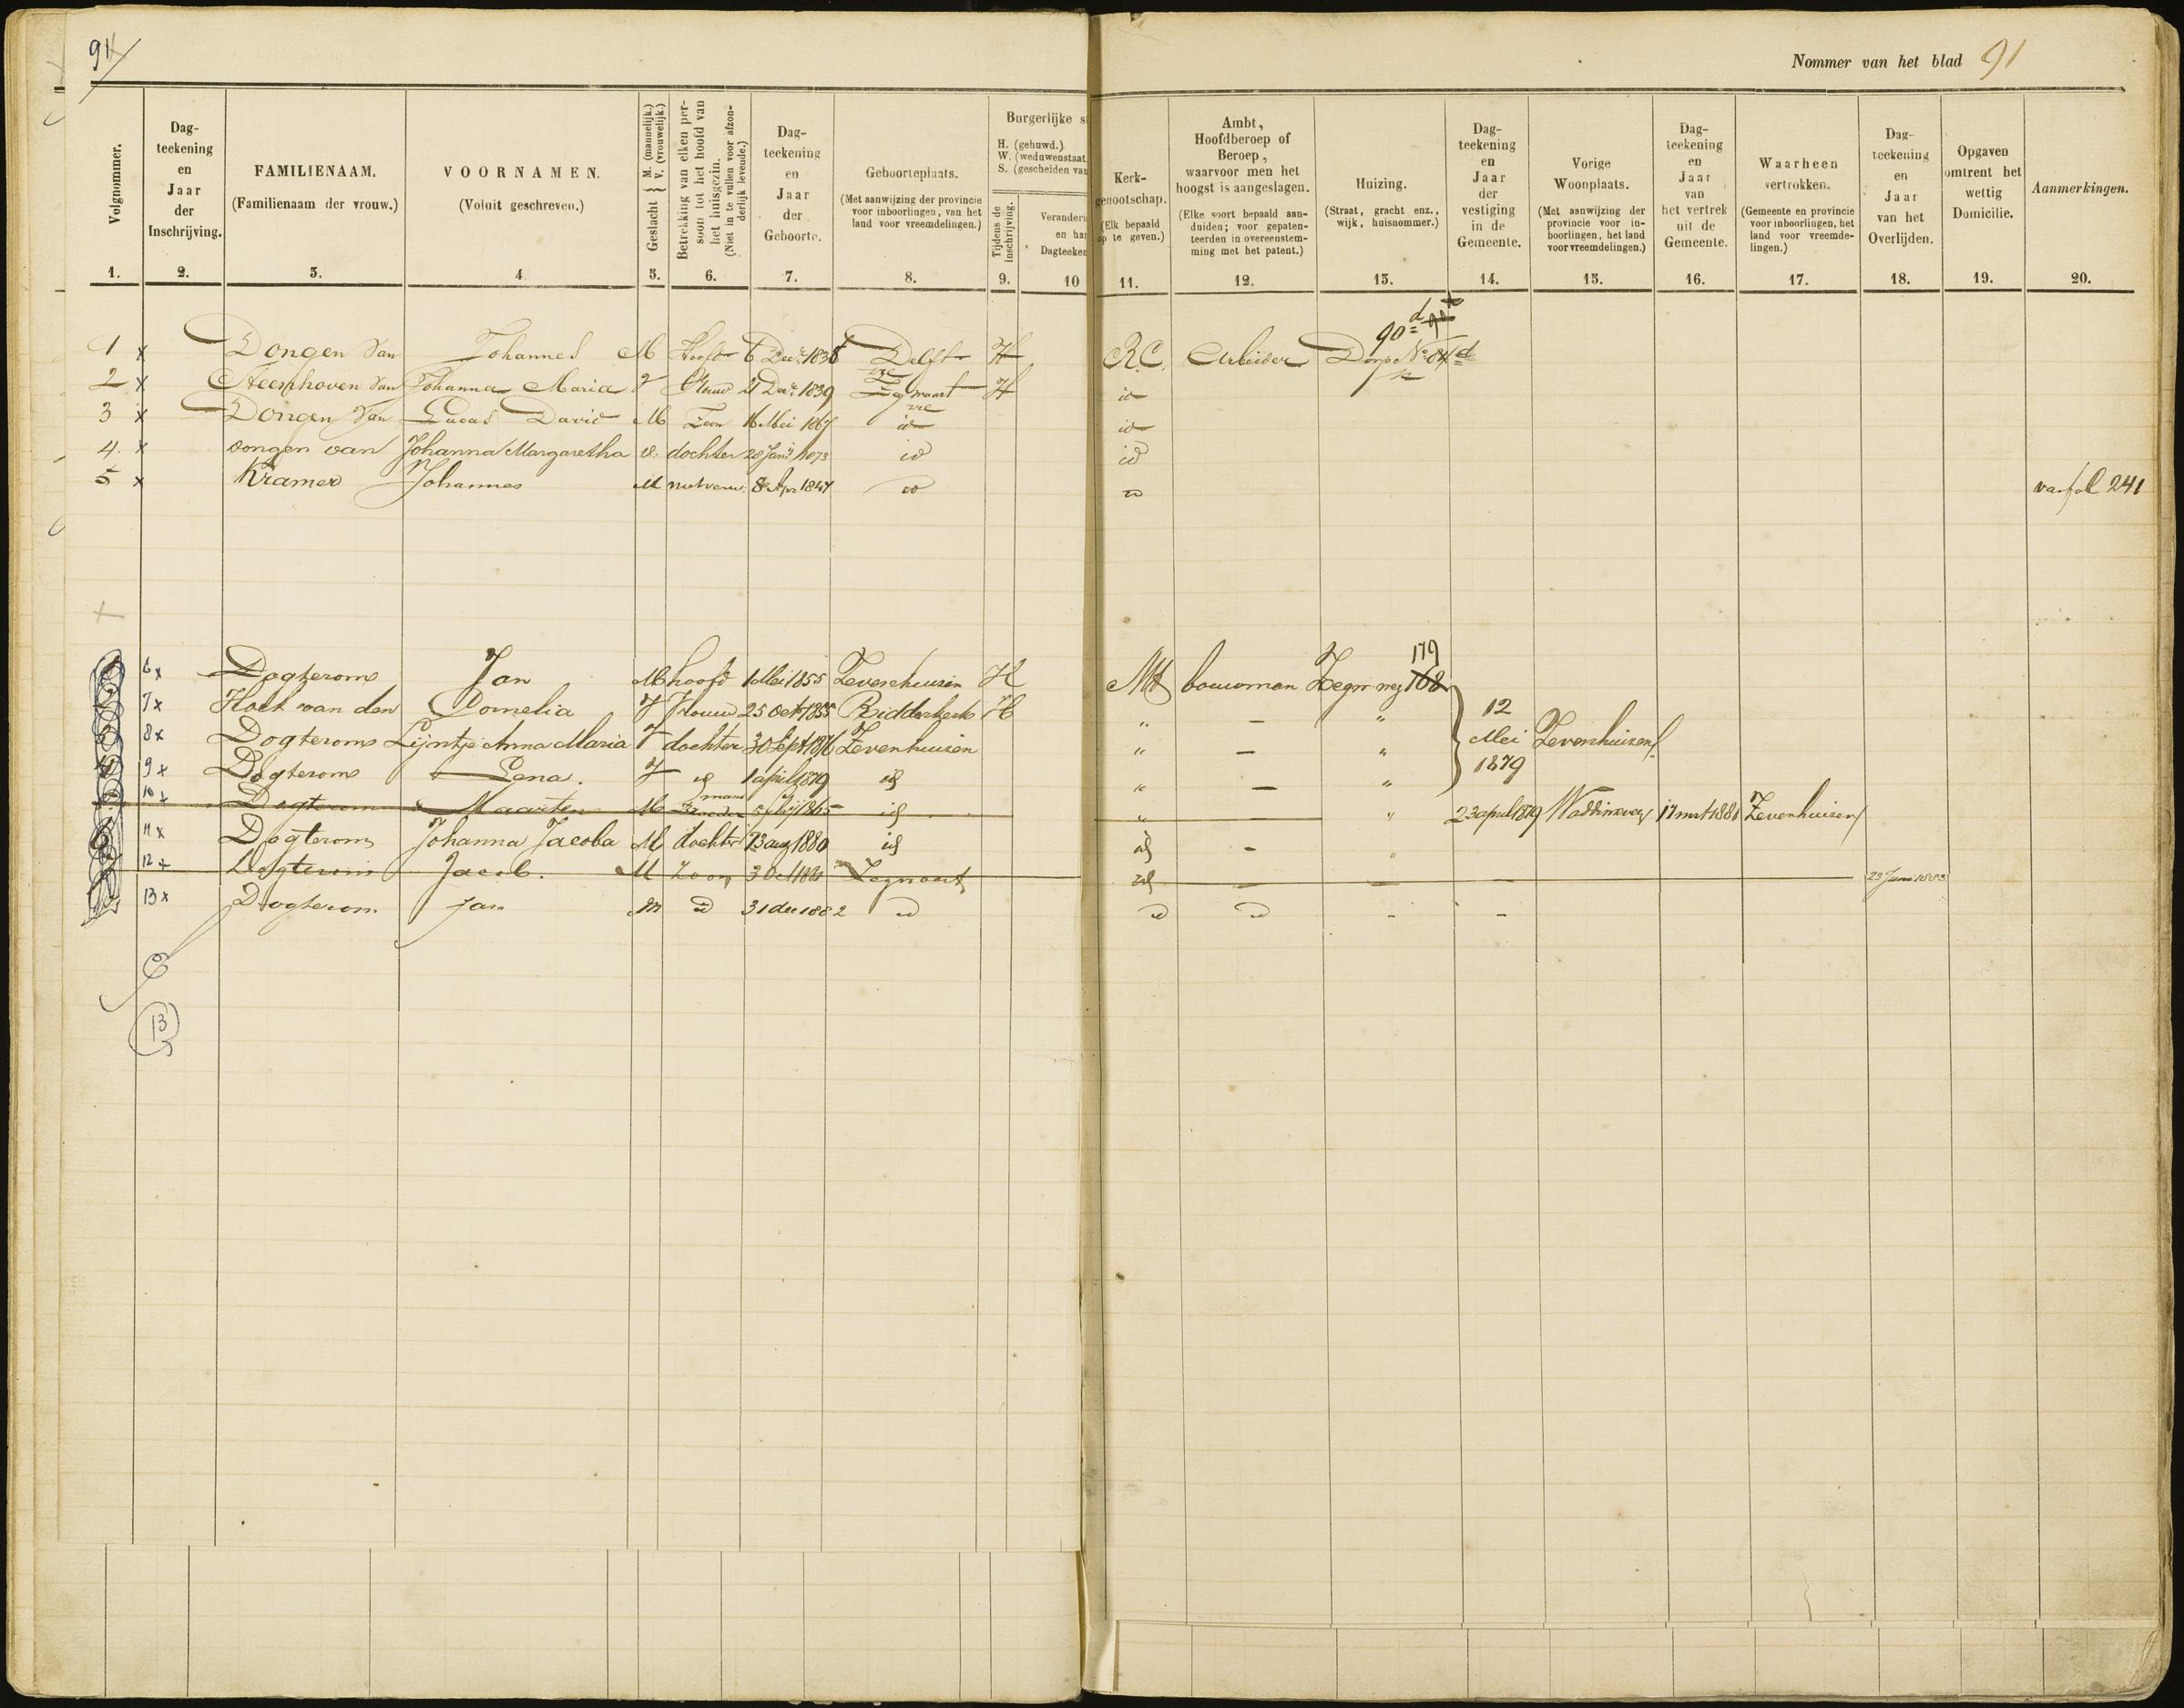 91
Nommer van het blad 91
Volgnommer.
1.
Dag-
teekening
en
Jaar
der
Inschrijving.
2.
FAMILIENAAM.
(Familienaam der vrouw.)
3.
VOORNAMEN.
(Voluit geschreven.)
4
Geslacht { M. (mannelijk.) V. (vrouwelijk.)
5.
Betrekking van elken per-
soon tot het hoofd van
het huisgezin.
(Niet in te vullen voor afzon-
derlijk levende.)
6.
Dag-
teekening
en
Jaar
der
Geboorte.
7.
Geboorteplaats.
(Met aanwijzing der provincie
voor inboorlingen, van het
land voor vreemdelingen.)
8.
Burgerlijke s
H. (gehuwd.)
W. (weduwenstaat.
S. (gescheiden van
Tijdens de
inschrijving.
9.
Veranderi
en ha
Dagteeken
10
Kerk-
genootschap.
(Elk bepaald
op te geven.)
11.
Ambt,
Hoofdberoep of
Beroep,
waarvoor men het
hoogst is aangeslagen.
(Elke soort bepaald aan-
duiden; voor gepaten-
teerden in overeenstem-
ming met het patent.)
12.
Huizing.
(Straat, gracht enz.,
wijk, huisnommer.)
13.
Dag-
teekening
en
Jaar
der
vestiging
in de
Gemeente.
14.
Vorige
Woonplaats.
(Met aanwijzing der
provincie voor in-
boorlingen, het land
voor vreemdelingen.)
15.
Dag-
teekening
en
Jaar
van
het vertrek
uit de
Gemeente.
16.
Waarheen
vertrokken.
(Gemeente en provincie
voor inboorlingen, het
land voor vreemde-
lingen.)
17.
Dag-
teekening
en
Jaar
van het
Overlijden.
18.
Opgaven
omtrent het
wettig
Domicilie.
19.
Aanmerkingen.
20.
90 d
1 x Dongen van Johannes M Hoofd 6 Decr 1838 Delft H R.C. Arbeider Dorp No 84 d
2 x Steenhoven van Johanna Maria V Vrouw 21 Decr 1839 Zegwaart H id
3 x Dongen van Lucas David M Zoon 16 Mei 1867 id id
4. x dongen van Johanna Margaretha v. dochter 28 Janij 1873 id id
5 x Kramer Johannes M niet verw. 8 Apr 1847 id id van fol 241
179
6 x Dogterom Jan M hoofd 1 Mei 1855 Zevenhuizen H NH bouwman Zegw weg 168
7 x Hoek van den Cornelia V Vrouw 25 Oct 1855 Ridderkerk H " — " 12
8 x Dogterom Lijntje Anna Maria V dochter 30 Sept 1876 Zevenhuizen " — " Mei Zevenhuizen
9 x Dogterom Lena. V id 1 april 1879 id " — " 1879
mans
10 x Dogterom Maarten M Broeder 5 1865 id " " 23 april 1879 Waddinxveen 17 mrt 1881 Zevenhuizen
11 x Dogterom Johanna Jacoba M dochter 13 aug 1880 id id - "
12 x Dogterom Jacob. M Zoon 3 Oct 1881 Zegwaart id — — — 23 Juni 1883
13 x Dogterom Jan M id 31 dec 1882 id id id - -
13